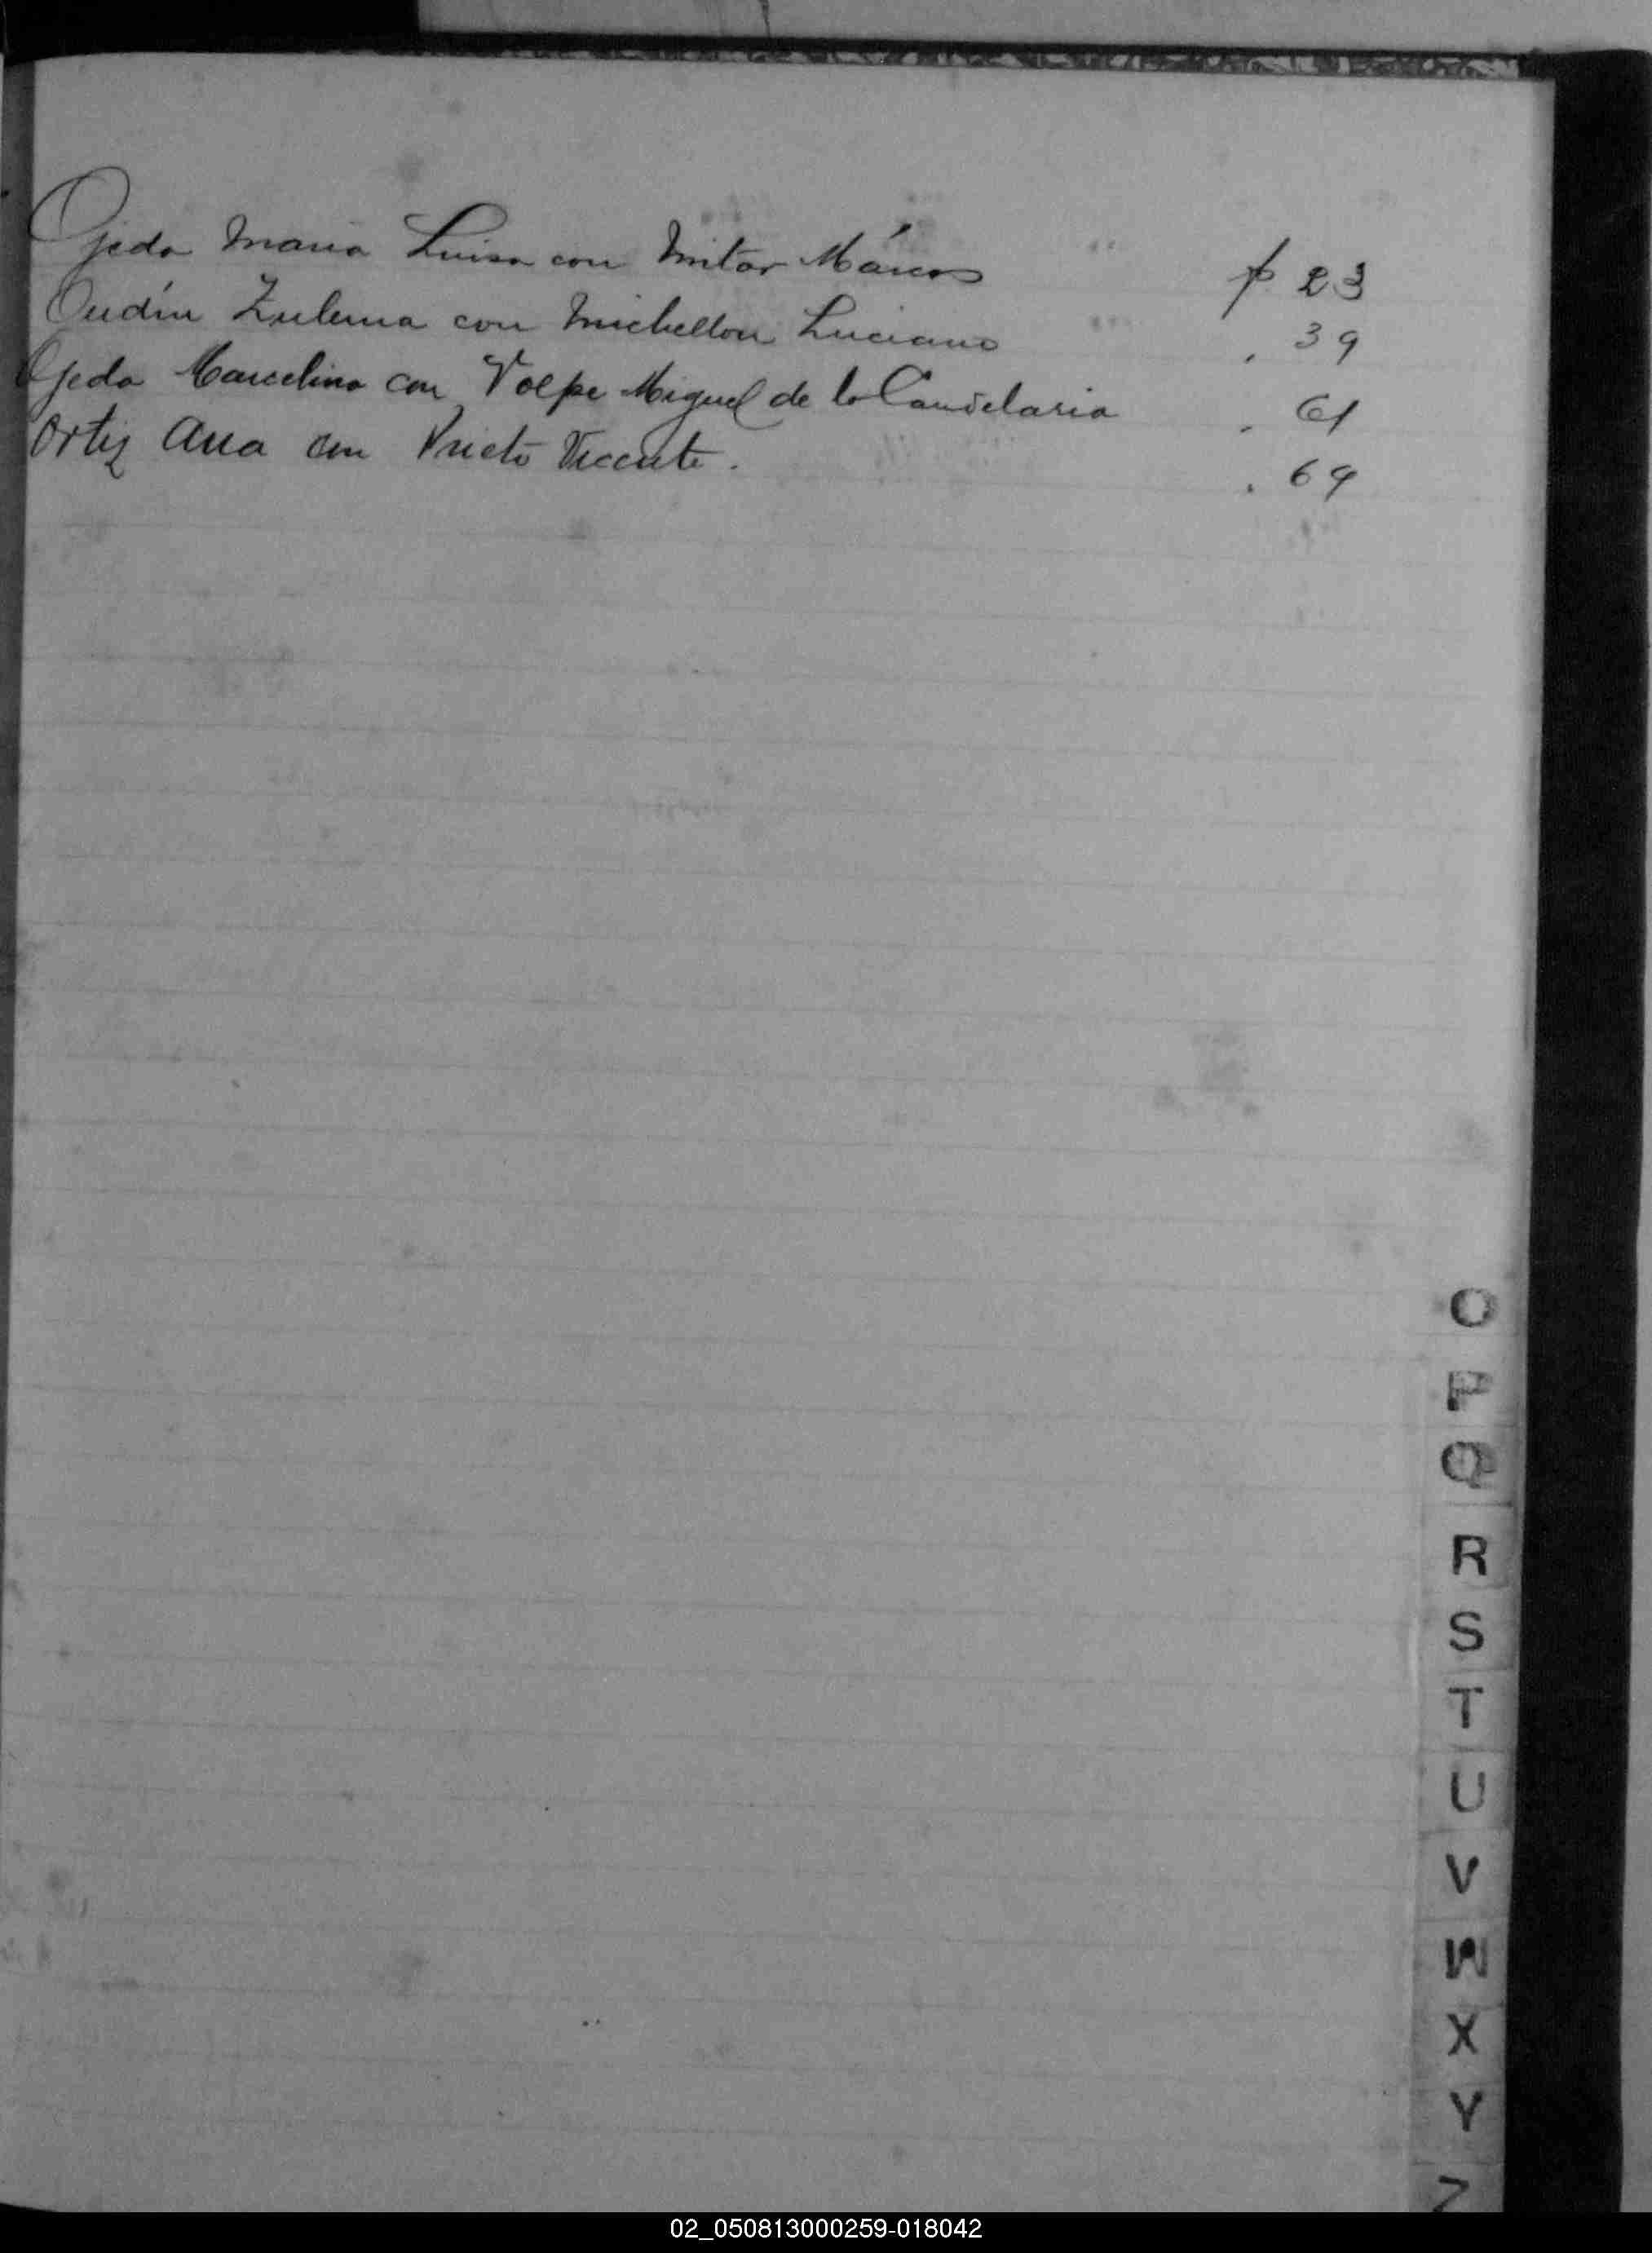 Ojeda Maria Luisa con Mitar Márcos p 23
Oudín Zulema con Michellon Luciano . 39
Ojeda Marcelina con Volpe Miguel de la Candelaria . 61
Ortiz Ana con Prieto Vicente . . 69
O
P
Q
R
S
T
U
V
W
X
Y
Z
02_050813000259-018042